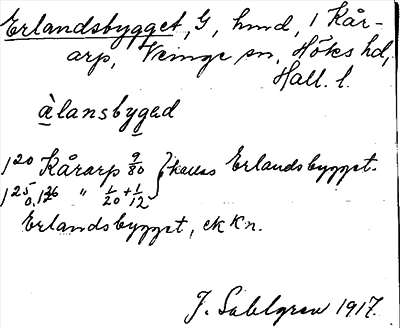 Erlandsbygget, G, hmd, i Kår-
arp, Veinge sn, Höks hd,
Hall. l.
àlansbygəd
1²⁰ Kårarp 9/80 } kallas Erlandsbygget.
1²⁵ 0,126 " 1/20 + 1/12
Erlandsbygget, ek kn.
J. Sahlgren 1917.